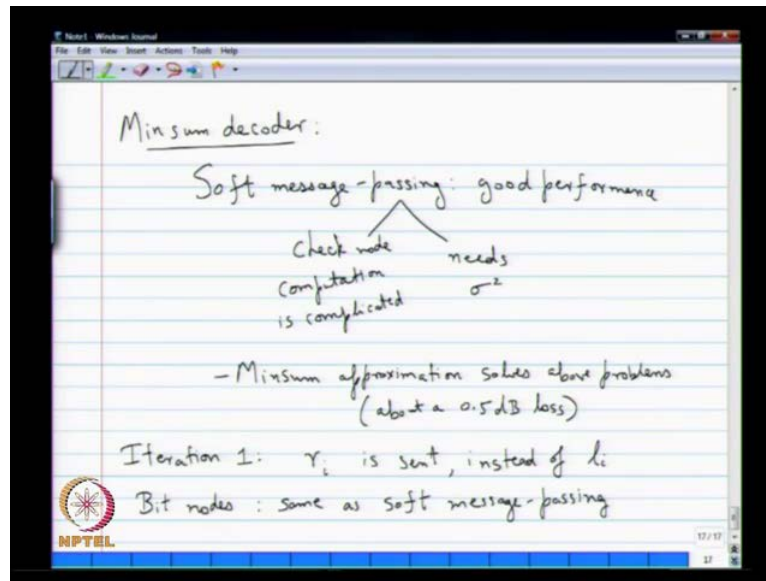 Note1 - Windows Journal
File Edit View Insert Actions Tools Help
Minsum decoder:
Soft message-passing: good performance
Check node
computation
is complicated
needs
σ²
- Minsum approximation solves above problems
(about a 0.5dB loss)
Iteration 1: r_i is sent, instead of l_i
Bit nodes: same as soft message-passing
NPTEL
17/17
17